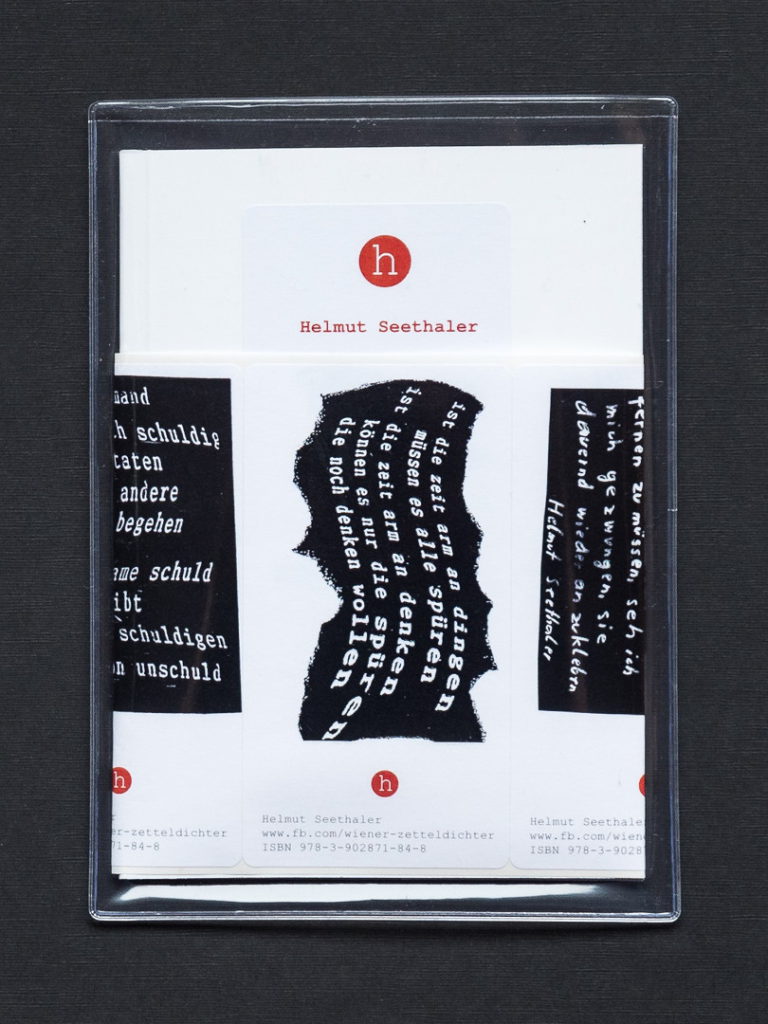 h
Helmut Seethaler
mand
h schuldig
taten
andere
begehen
ame schuld
ibt
schuldigen
n unschuld
ist die zeit arm an dingen
müssen es alle spüren
ist die zeit arm an denken
können es nur die spüren
die noch denken wollen
fernen zu müssen, seh ich
mich gezwungen, sie
dauernd wieder an zuklebn
Helmut Seethaler
h
er-zetteldichter
71-84-8
h
Helmut Seethaler
www.fb.com/wiener-zetteldichter
ISBN 978-3-902871-84-8
Helmut Seethaler
www.fb.com/wien
ISBN 978-3-902871-8